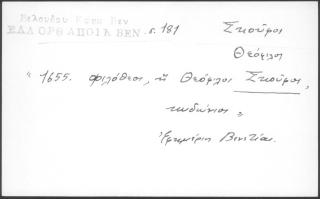 Βελούδου Κωνσ Βεν
ΕΛΛ ΟΡΘ ΑΠΟΙΚ ΒΕΝ σ. 181
Σκούφος
Θεόφιλος
"1655. φιλόθεος, ἢ Θεόφιλος Σκούφος,
κυδώνιος"
Ἐφημέριος Βενετίας